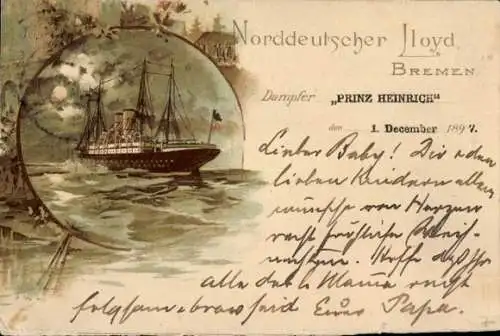 Norddeutscher Lloyd,
BREMEN.
Dampfer „PRINZ HEINRICH"
den 1. December 1897.
Lieber Baby! Dir & den
lieben Kindern allen
wünsche von Herzen
recht fröhliche Weih-
nachten. Hoffe daß Ihr
alle der l. Mama recht
folgsam & brav seid Euer Papa.